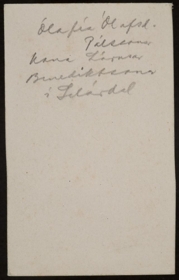 Ólafía Ólafsd.
Pálssona
kona Lárusar
Benediktssonar
í Selárdal